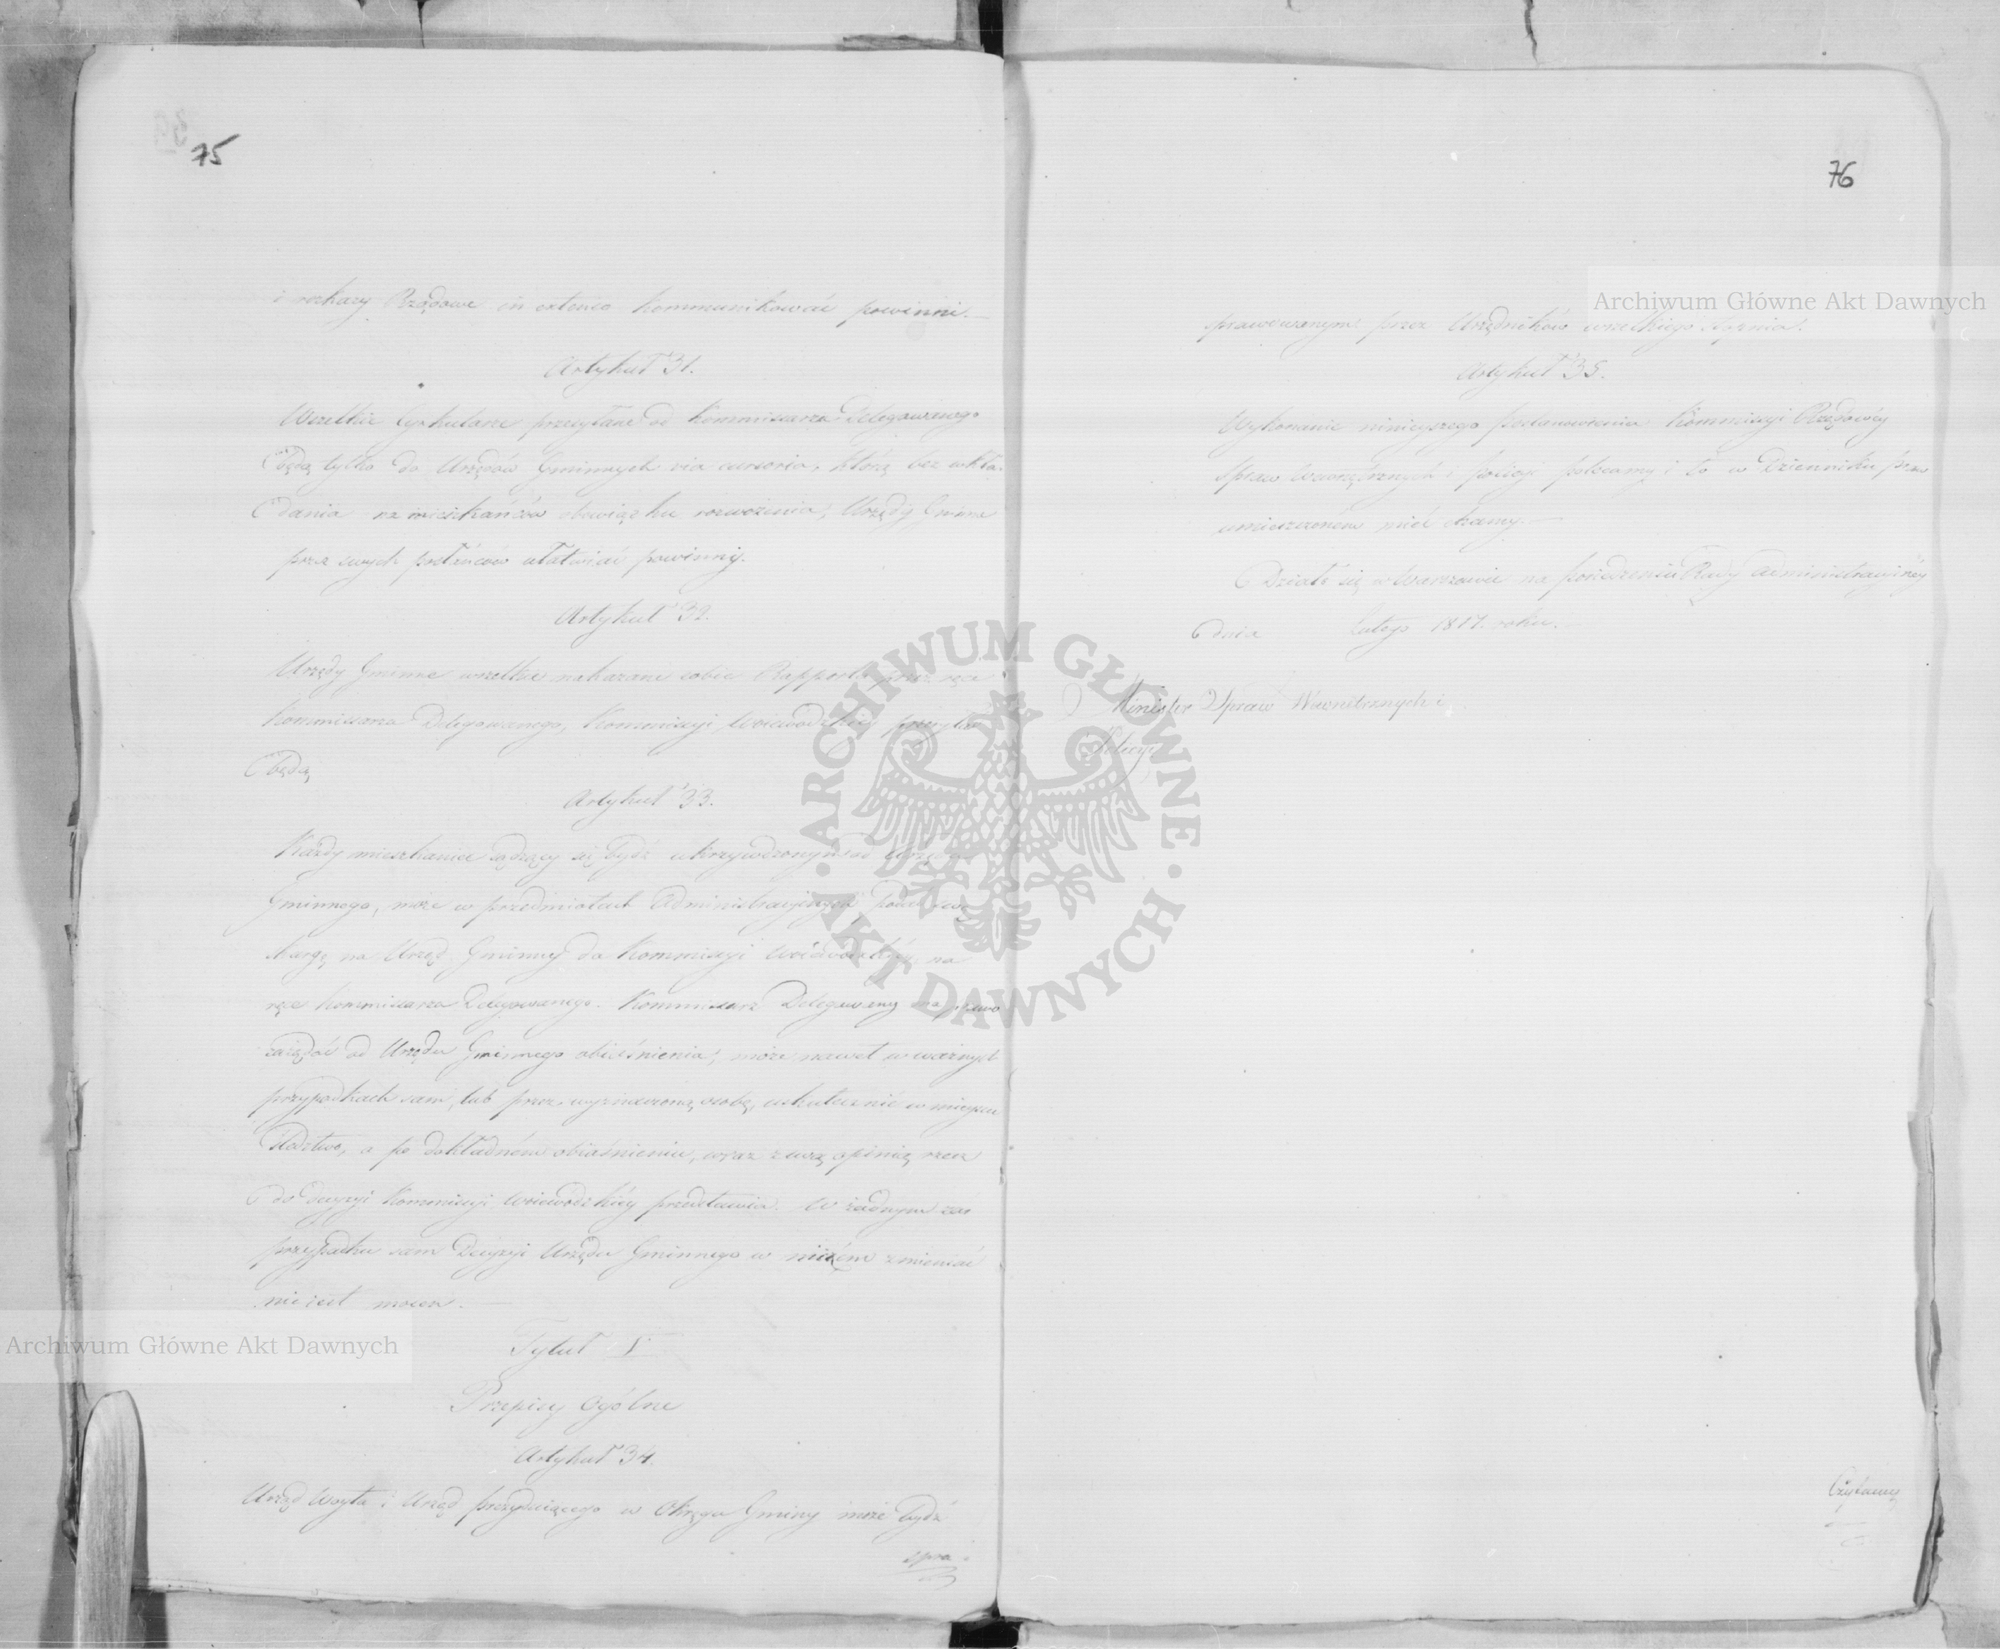 75
i rozkazy Rządowe in extenso kommunikować powinni.
Artykuł 31.
Wszelkie Cyrkularze przesyłane od Kommissarza Delegowanego
będą tylko do Urzędów Gminnych via cursoria, którą bez wkła-
dania na mieszkańców obowiązku rozwożenia, Urzędy Gminne
przez swych posłańców ułatwiać powinny.
Artykuł 32.
Urzędy Gminne wszelkie nakazane sobie Rapporta przez ręce
Kommissarza Delegowanego, Kommissyi Woiewódzkiey przesyłać
będą
Artykuł 33.
Każdy mieszkaniec sądzący się bydź ukrzywdzonym od Urzędu
Gminnego, może w przedmiotach Administracyinych podać swą
skargę na Urząd Gminny do Kommissyi Woiewódzkiey, na
ręce Kommissarza Delegowanego. Kommissarz Delegowany ma prawo
zażądać od Urzędu Gminnego obiaśnienia, może nawet w ważnych
przypadkach sam, lub przez wyznaczoną osobę, uskutecznić w mieyscu
śledztwo, a po dokładném obiaśnieniu, wraz z swą opinią rzecz
do decyzyi Kommissyi Woiewódzkiey przedstawia. W żadnym zaś
przypadku sam Decyzyi Urzędu Gminnego w niczem zmieniać
nie iest mocen.
Tytuł V
Przepisy Ogólne
Artykuł 34.
Urząd Woyta i Urząd przysięgłego w Okręgu Gminy może bydź
spra
76
sprawowanym przez Urzędników wszelkiego stopnia.
Artykuł 35.
Wykonanie ninieyszego Postanowienia Kommissyi Rządowéy
Spraw Wewnętrznych i Policyi polecamy i to w Dzienniku praw
umieszczoném mieć chcemy.
Działo się w Warszawie na posiedzeniu Rady Administracyinéy
dnia Lutego 1817. roku.
Minister Spraw Wewnętrznych i
Policyi
Czytamy
Archiwum Główne Akt Dawnych
Archiwum Główne Akt Dawnych
ARCHIWUM GŁÓWNE AKT DAWNYCH